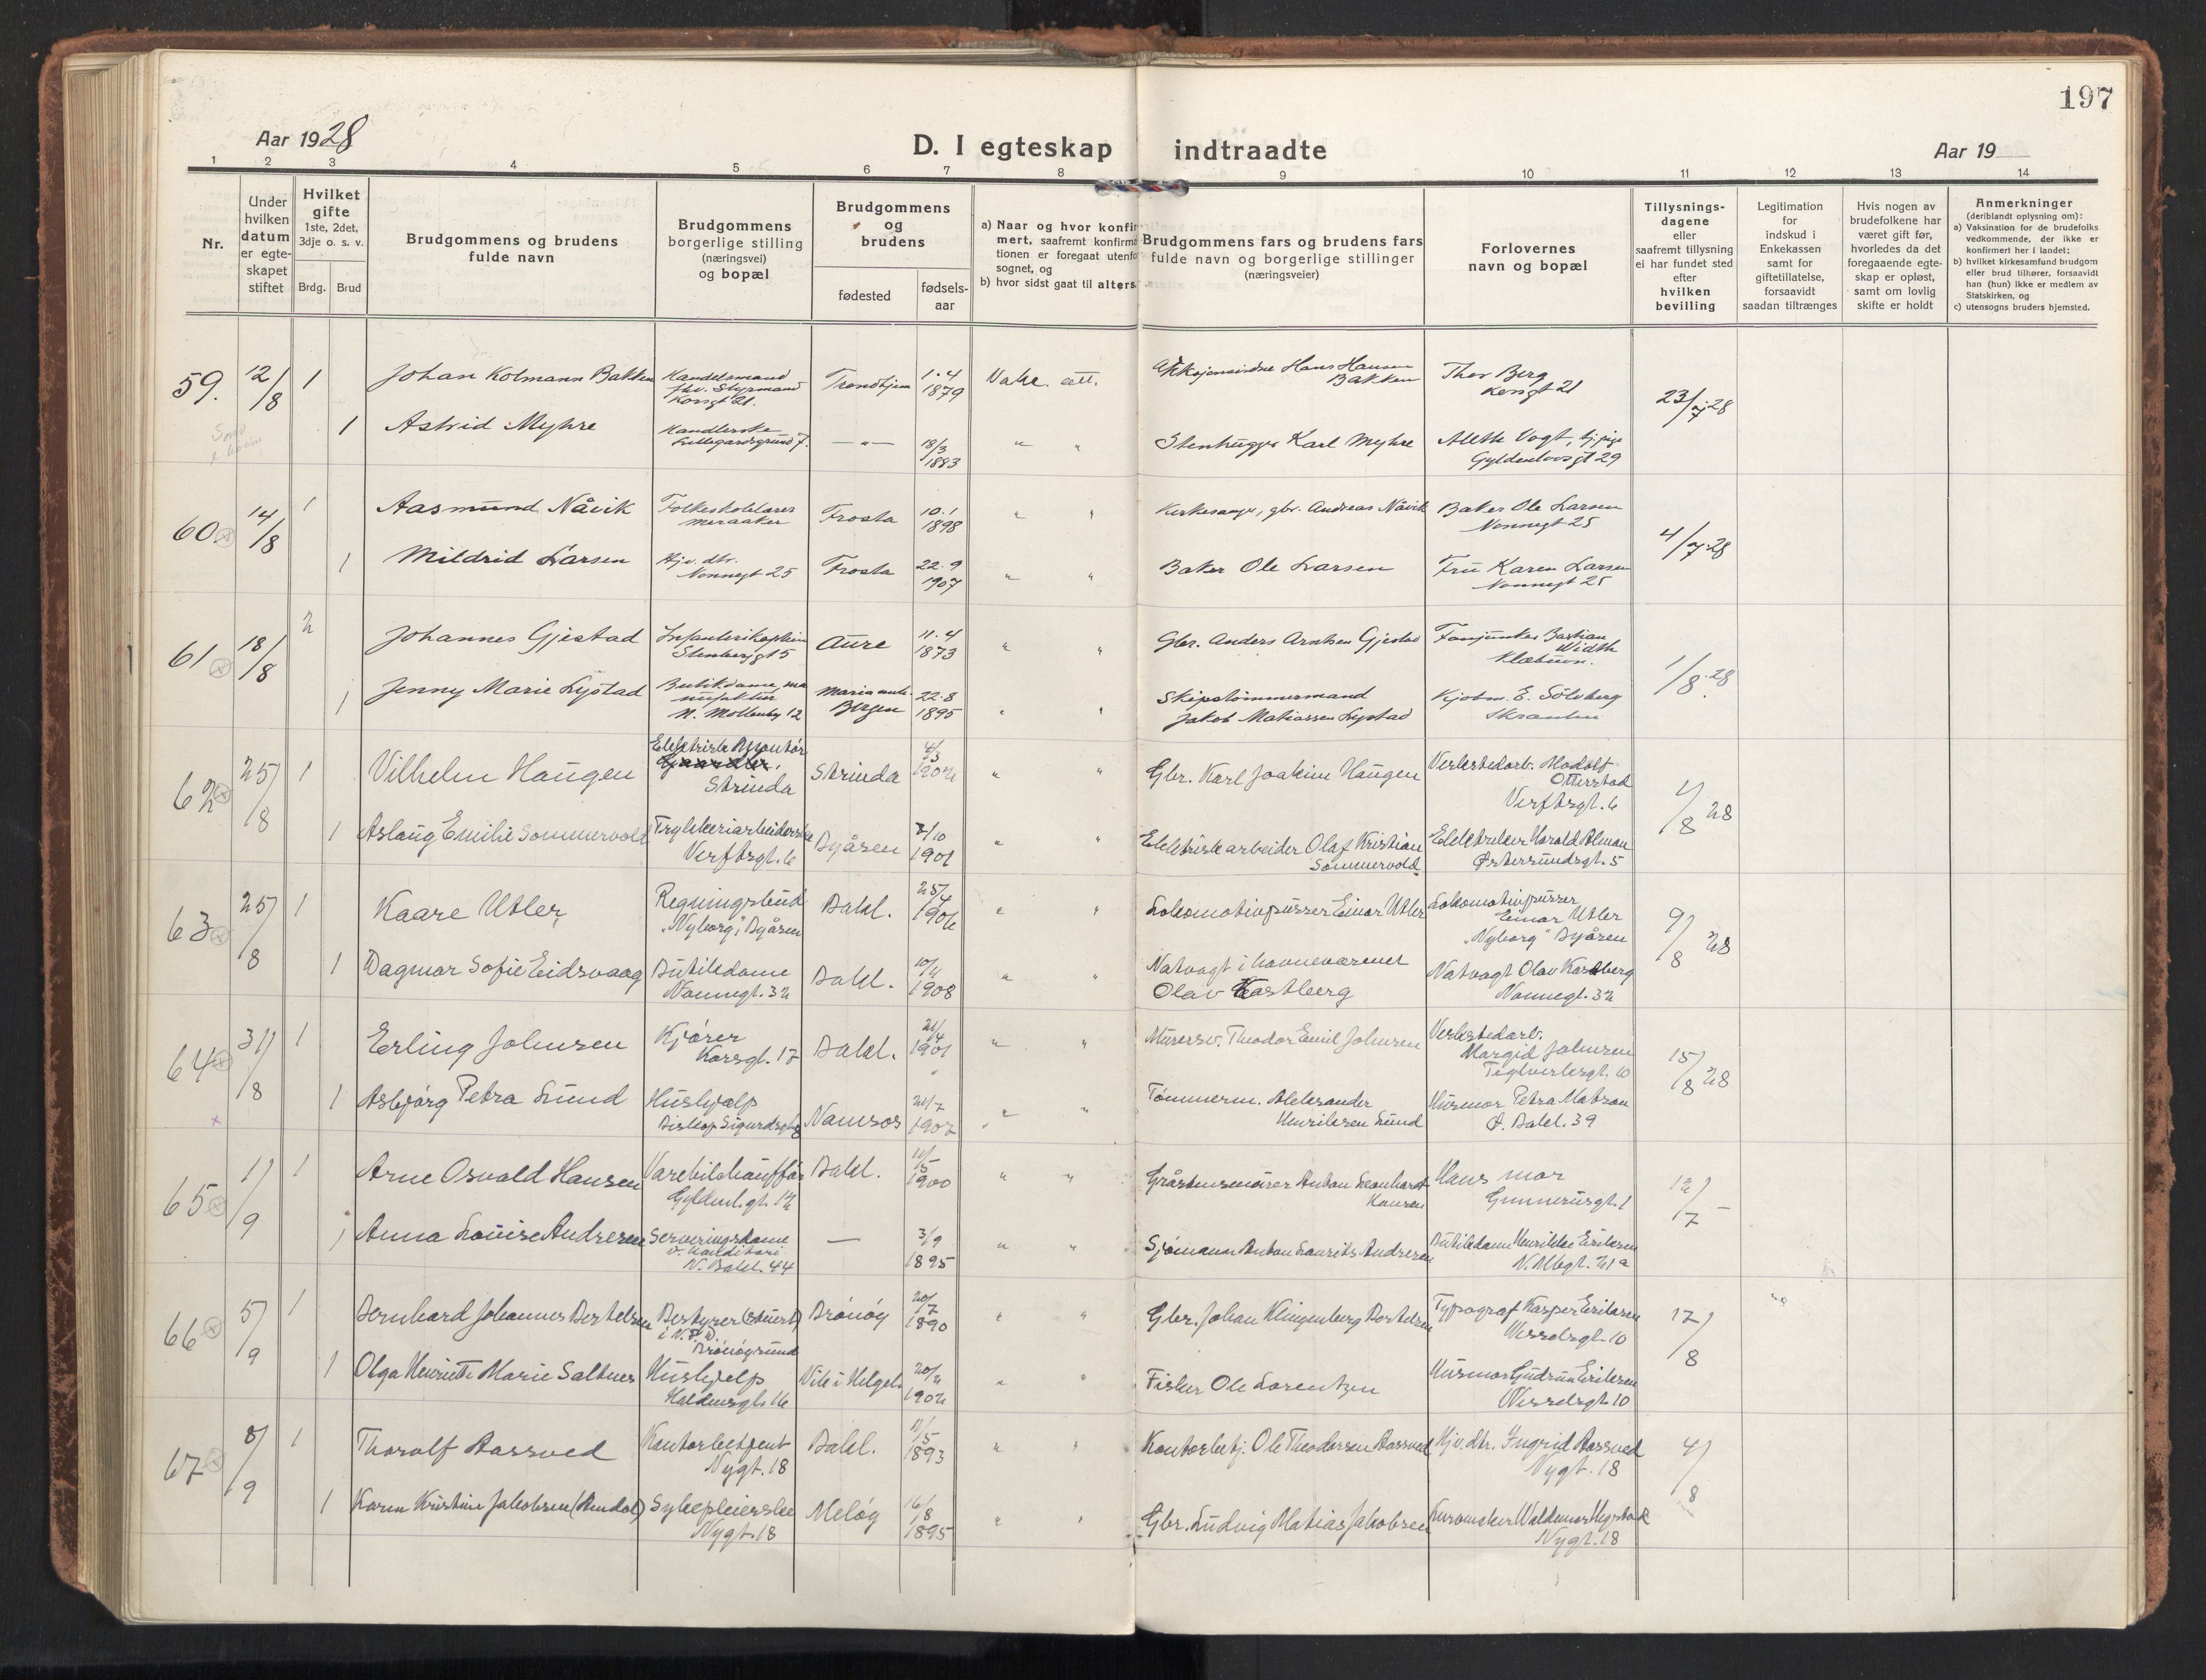 197
Aar 1928
D. I egteskap indtraadte
Aar 19
1 2 3 4 5 6 7 8 9 10 11 12 13 14
Nr.
Under
hvilken
datum
er egte-
skapet
stiftet
Hvilket
gifte
1ste, 2det,
3dje o. s. v.
Brdg. Brud
Brudgommens og brudens
fulde navn
Brudgommens
borgerlige stilling
(næringsvei)
og bopæl
Brudgommens
og
brudens
fødested
fødsels-
aar
a) Naar og hvor konfir
mert, saafremt konfirma
tionen er foregaat utenfo
sognet, og
b) hvor sidst gaat til alters.
Brudgommens fars og brudens fars
fulde navn og borgerlige stillinger
(næringsveier)
Forlovernes
navn og bopæl
Tillysnings-
dagene
eller
saafremt tillysning
ei har fundet sted
efter
hvilken
bevilling
Legitimation
for
indskud i
Enkekassen
samt for
giftetillatelse,
forsaavidt
saadan tiltrænges
Hvis nogen av
brudefolkene har
været gift før,
hvorledes da det
foregaaende egte-
skap er opløst,
samt om lovlig
skifte er holdt
Anmerkninger
(deriblandt oplysning om):
a) Vaksination for de brudefolks
vedkommende, der ikke er
konfirmert her i landet;
b) hvilket kirkesamfund brudgom
eller brud tilhører, forsaavidt
han (hun) ikke er medlem av
Statskirken, og
c) utensogns bruders hjemsted.
59. 12/8 1 Johan Kolmann Bakken Handelsmand
fhv. Styrmand
Korsgt 21. Trondhjem 1.4
1879 Hans Hansen
Bakken Thor Berg
Korsgt 21 23/7 28
1 Astrid Myhre Handlerske
Lillegårdsgrund 7. — " — 18/3
1883 " " Stenhugger Karl Myhre Alette Vogt, hj. pige
Gyldenløvsgt 29
60 14/8 1 Aasmund Nåvik Folkeskolelærer
Meraaker Frosta 10.1
1898 " " Kirkesanger, gbr. Andreas Nåvik Baker Ole Larsen
Nonnegt 25 4/7 28
1 Mildrid Larsen Hjv. dtr.
Nonnegt 25 Frosta 22.9
1907 " " Baker Ole Larsen Fru Karen Larsen
Nonnegt 25
61 18/8 2 Johannes Gjestad Infanterikaptein
Stenbergt 5 Aure 11.4
1873 " " Gbr. Anders Arntsen Gjestad Fanjunker Bastian
Width
Klæbuvn. 1/8 28
1 Jenny Marie Lystad Butikdame, ma
nufaktur
N. Møllenby 12 Maria
Bergen 22.8
1895 " " Skipstømmermand
Jakob Matiassen Lystad Kjøbm. E. Sølvberg
62 25/8 1 Vilhelm Haugen Elektrisk Montør
Strinda Strinda 4/3
1902 " " Gbr. Karl Joakim Haugen Verkstedarb. Modolf
Otterstad
Verftsgt. 6 1/8 28
1 Aslaug Emilie Sommervold Trykkeriarbeiderske
Verftsgt. 6 Byåsen 2/10
1901 " " Elektriskarbeider Olaf Kristian
Sommervold Elektriker Harald Alman
Østersundsgt. 5
63 25/8 1 Kaare Utler Regningsbud
"Nyborg", Byåsen Bakl. 25/4
1906 " " Lokomotivpusser Einar Utler Lokomotivpusser
Einar Utler
"Nyborg" Byåsen 9/8 28
1 Dagmar Sofie Eidsvaag Butikdame
Nonnegt. 32 Bakl. 10/11
1908 " " Natvagt i havnevæsenet
Olav Karlberg Natvagt Olav Karlberg
Nonnegt. 32
64 31/8 1 Erling Johnsen Kjører
Korsgt. 17 Bakl. 21/4
1901 " " Murersv. Theodor Emil Johnsen Verkstedarb.
Margid Johnsen
Teglverksgt. 10 15/8 28
1 Asbjørg Petra Lund Hushjælp
Biskop Sigurdsgt 8 Namsos 21/7
1907 " " Tømmerm. Aleksander
Henriksen Lund Husmor Petra Matson
Ø. Bakl. 39
65 1/9 1 Arne Osvald Hansen Varebilchauffør
Gyldenl. gt. 12 Bakl. 11/5
1900 " " Gråstensmurer Anton Leonhard
Hansen Hans mor
Gunnerusgt. 1 12/7 –
1 Anna Louise Andresen Serveringsdame
v. Konditori
N. Bakl. 44 — 3/9
1895 " " Sjømann Anton Laurits Andresen Butikdame Henrikke Eriksen
N. Allegt. 21a
66 5/9 1 Bernhard Johannes Bertelsen Bestyrer (Stuert)
Brønøysund Brønøy 20/7
1890 " " Gbr. Johan Klingenberg Bertelsen Typograf Kasper Eriksen
Wesselsgt. 10 17/8
1 Olga Henriette Marie Saltnes Hushjelp
Haldensgt. 16 Vik i Helgel. 20/2
1902 " " Fisker Ole Lorentzen Husmor Gudrun Eriksen
Wesselsgt. 10
67 8/9 1 Thoralf Aassved Kontorbetjent
Nygt. 18 Bakl. 11/5
1893 " " Kontorbetj. Ole Theodorsen Aassved Hjv. dtr. Ingrid Aassved
Nygt. 18 4/8
1 Karen Kristine Jakobsen Sykepleierske
Nygt. 18 Meløy 16/8
1895 " " Gbr. Ludvig Matias Jakobsen Kurvmaker Waldemar Hegstad
Nygt. 18